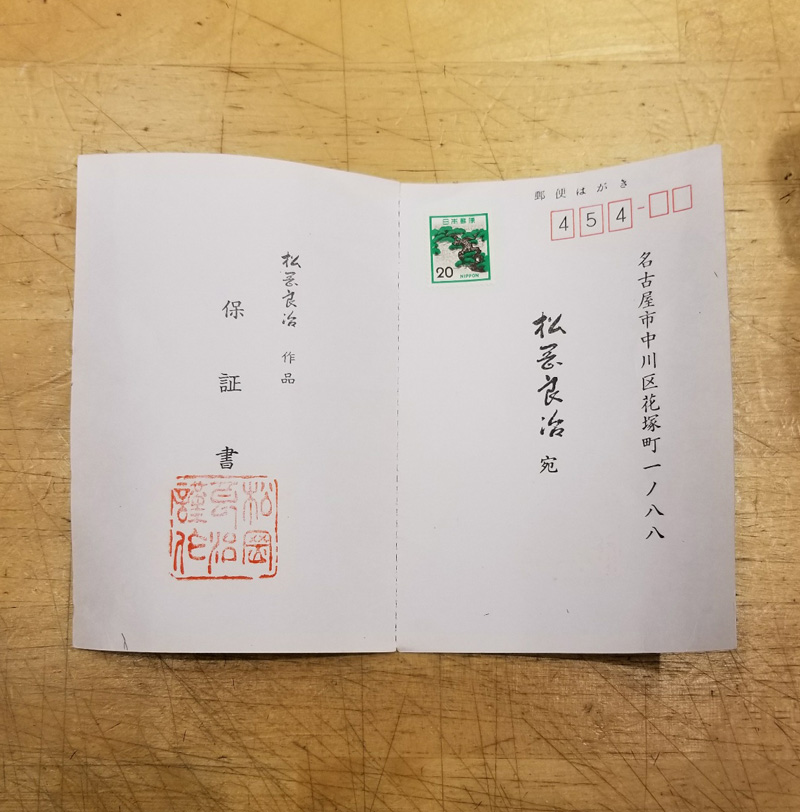 郵便はがき
454-
日本郵便
20
NIPPON
名古屋市中川区花塚町一ノ八八
松岡良治 宛
松岡良治 作品
保証書
松岡
良治
謹作